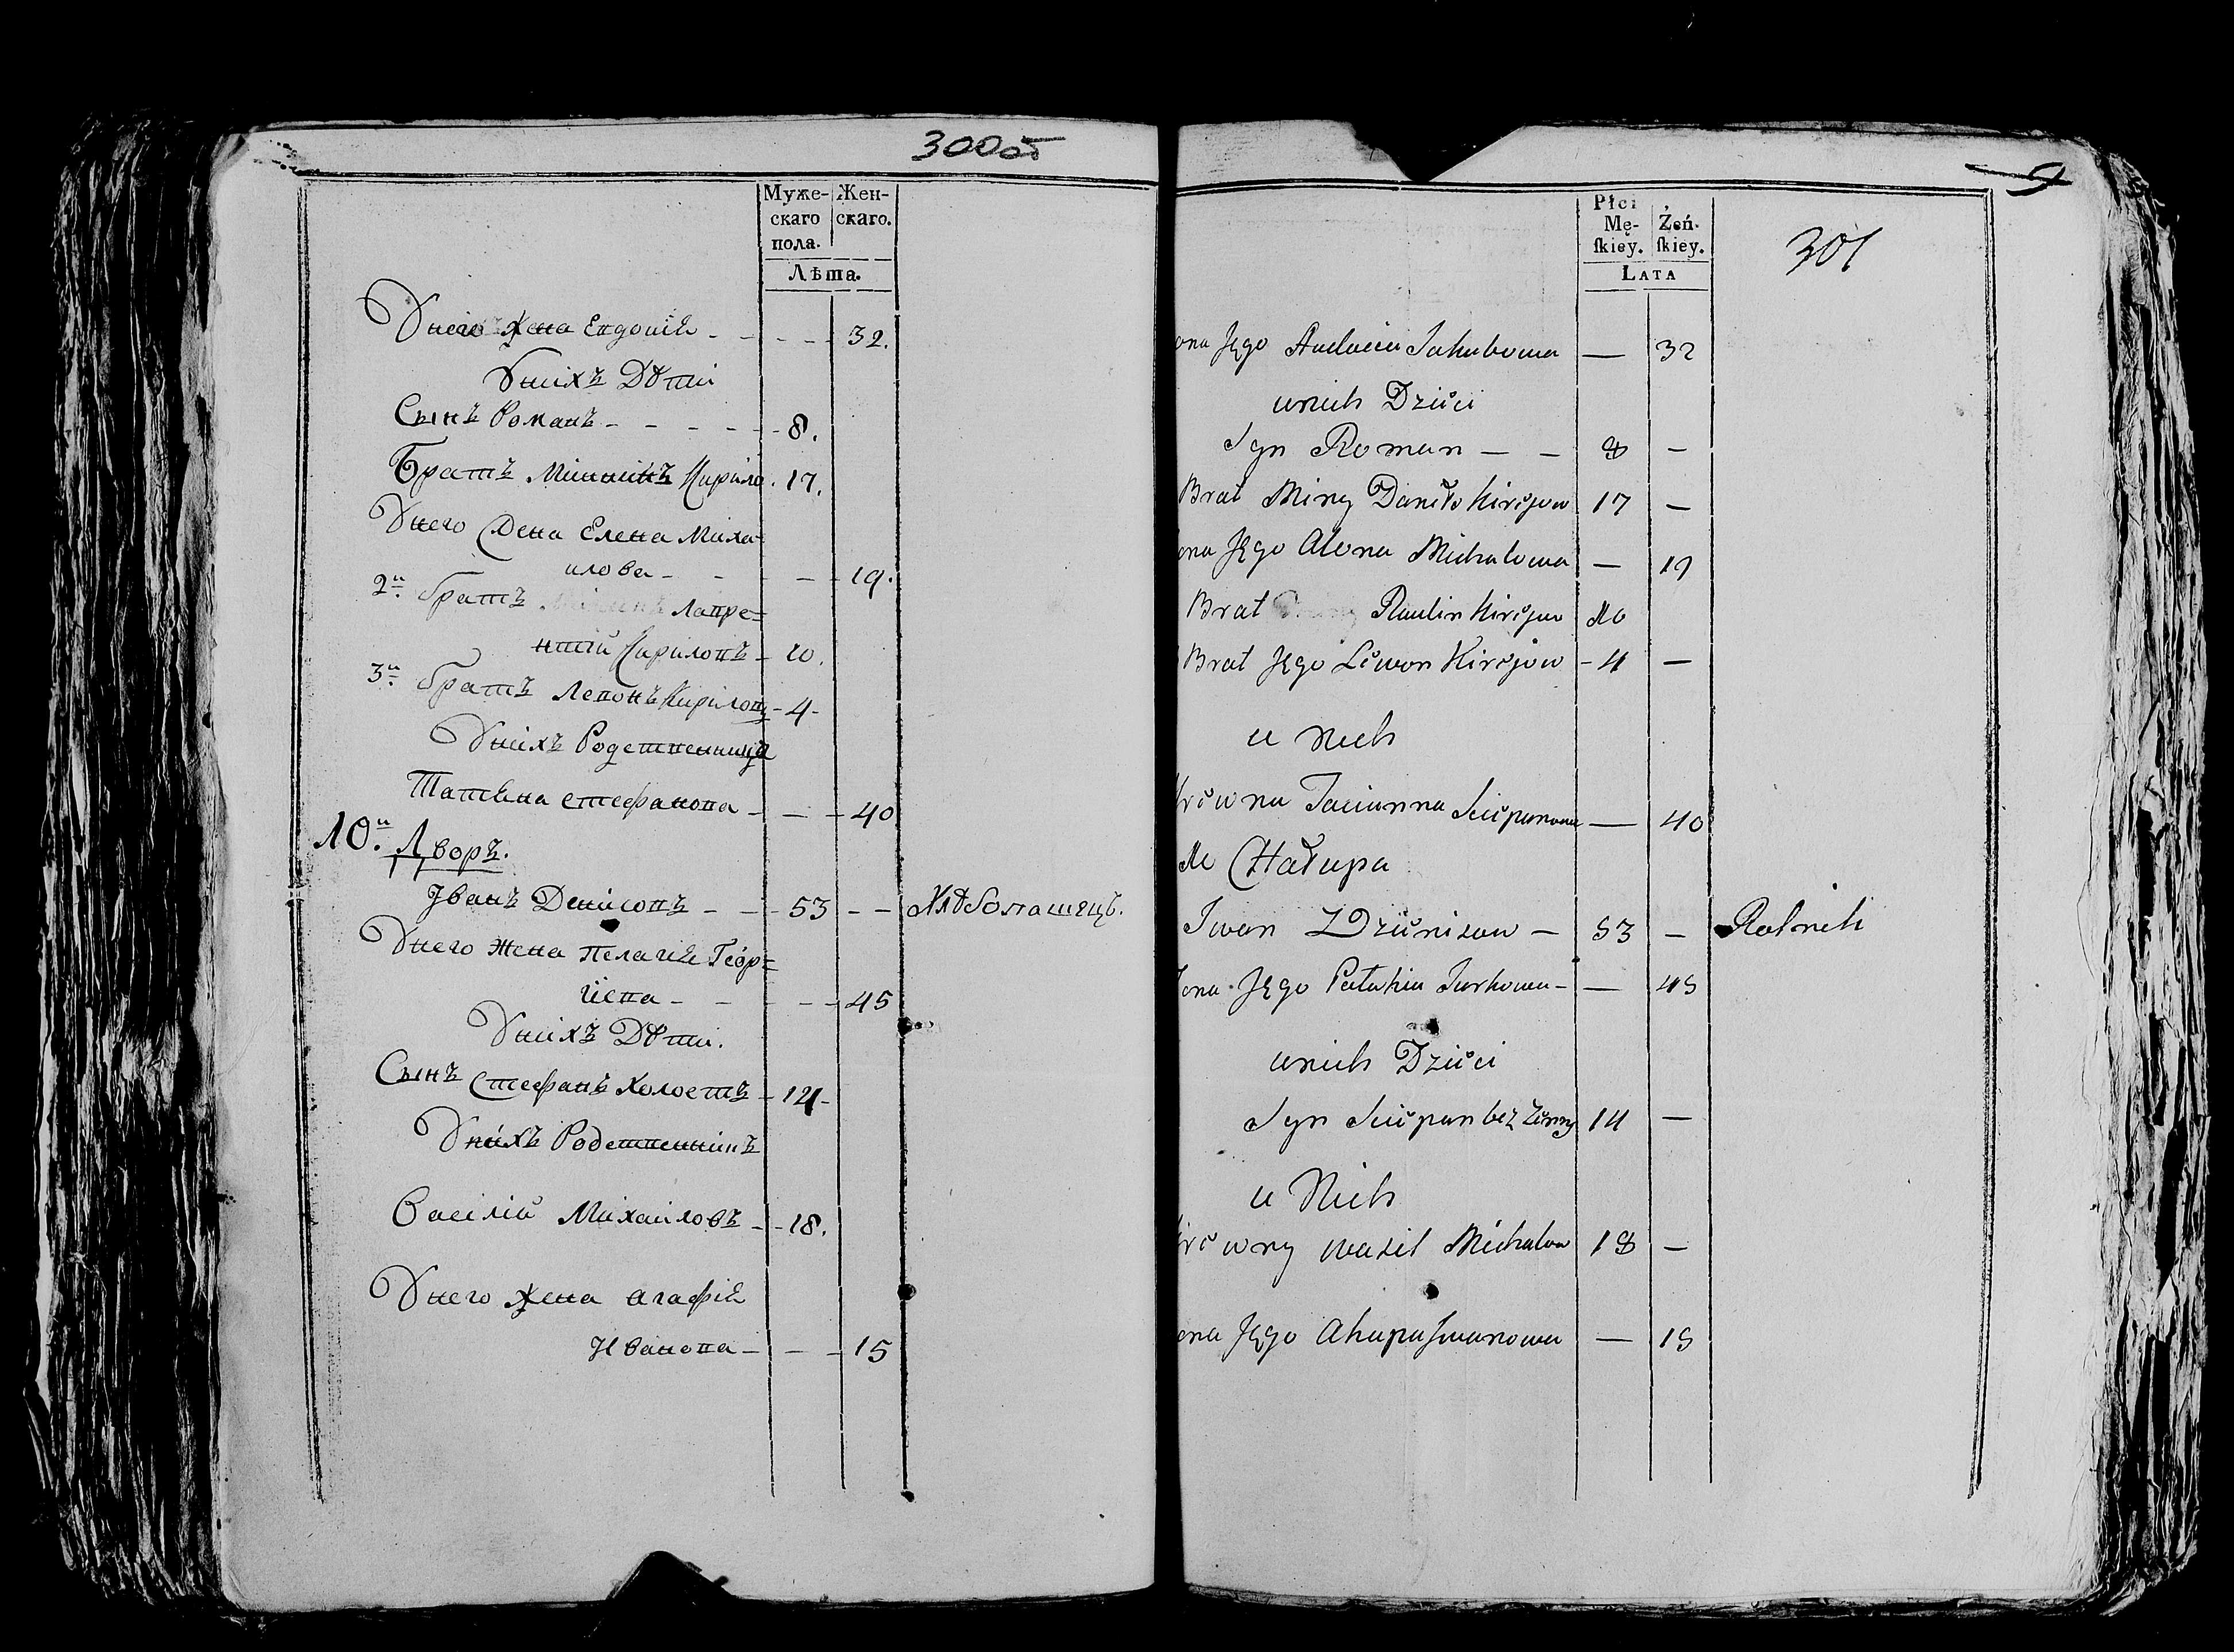 300 об
Муже- Жен-
скаго скаго.
пола.
Лѣта.
Унего Жена Евдокія - - - - 32.
Унихъ Дѣти
Сынъ Романъ - - - - - 8.
Братъ Мининъ Кирило - 17.
Унего Жена Елена Миха-
илова - - - - 19.
2й братъ Лавре=
нтій Кириловъ - 10.
3й братъ Левонъ Кириловъ - 4 -
Унихъ Родственница
Татіяна Стефанова - - - 40
10й Дворъ.
Іванъ Денісовъ - - - 53 - - Хлѣбопашецъ.
Унего Жена Пелагія Геор=
гіева - - - - 45
Унихъ Дѣти.
Сынъ Стефанъ Холостъ - 14 -
Унихъ Родственникъ
Василій Михаиловъ - - 18.
Унего Жена Агафія
Иванова - - - 15
9
Płci
Mę- Żeń-
skiey. skiey.
LATA
301
ona Jego Audocia Jakubowa — 32
unich Dzieci
Syn Roman — — 8 —
Brat Miny Daniło Kirejow 17 —
ona Jego Alona Michałowa — 19
Brat Paulin Kirejow 10
Brat Jego Lewon Kirejow - 4 —
u Nich
Krewna Tacianna Sciepanowa — 40
10 Chałupa
Iwan Dzienisow — 53 — Rolnik
ona Jego Pałahia Jurkowa - — 45
unich Dzieci
Syn Sciepan bez Żenny 14 —
u Nich
krewny Wasil Michałow 18 —
ona Jego Ahapa Jwanowa — 15